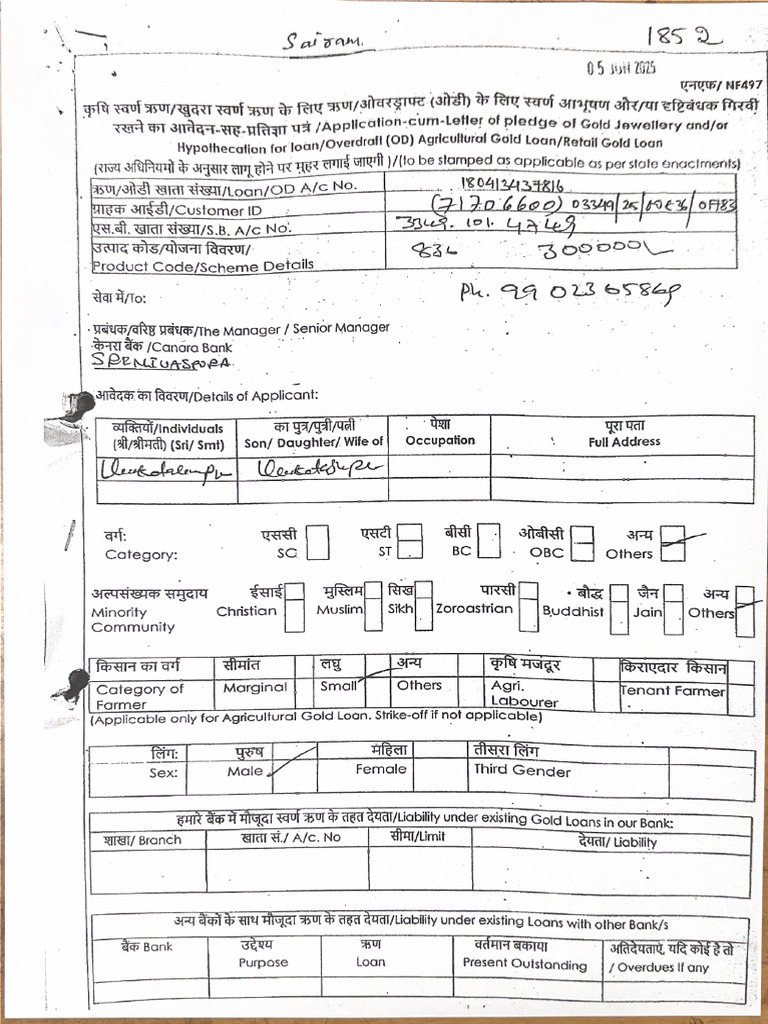 Sairam.
1852
05 JUN 2025
एनएफ/ NF497
कृषि स्वर्ण ऋण/खुदरा स्वर्ण ऋण के लिए ऋण/ओवरड्राफ्ट (ओडी) के लिए स्वर्ण आभूषण और/या दृष्टिबंधक गिरवी
रखने का आवेदन-सह-प्रतिज्ञा पत्र /Application-cum-Letter of pledge of Gold Jewellery and/or
Hypothecation for loan/Overdraft (OD) Agricultural Gold Loan/Retail Gold Loan
(राज्य अधिनियमों के अनुसार लागू होने पर मुहर लगाई जाएगी )/(to be stamped as applicable as per state enactments)
ऋण/ओडी खाता संख्या/Loan/OD A/c No. 180413437816
ग्राहक आईडी/Customer ID (71706600) 03349/25/
एस.बी. खाता संख्या/S.B. A/c No. 3349. 101. 4749
उत्पाद कोड/योजना विवरण/ 834 300000/-
Product Code/Scheme Details
सेवा में/To: Ph. 99023 65869
प्रबंधक/वरिष्ठ प्रबंधक/The Manager / Senior Manager
केनरा बैंक /Canara Bank
आवेदक का विवरण/Details of Applicant:
व्यक्तियों/Individuals का पुत्र/पुत्री/पत्नी पेशा पूरा पता
(श्री/श्रीमती) (Sri/ Smt) Son/ Daughter/ Wife of Occupation Full Address
वर्ग: एससी एसटी बीसी ओबीसी अन्य
Category: SC ST BC OBC Others
अल्पसंख्यक समुदाय ईसाई मुस्लिम सिख पारसी बौद्ध जैन अन्य
Minority Christian Muslim Sikh Zoroastrian Buddhist Jain Others
Community
किसान का वर्ग सीमांत लघु अन्य कृषि मजदूर किराएदार किसान
Category of Marginal Small Others Agri. Tenant Farmer
Farmer Labourer
(Applicable only for Agricultural Gold Loan. Strike-off if not applicable)
लिंग: पुरुष महिला तीसरा लिंग
Sex: Male Female Third Gender
हमारे बैंक में मौजूदा स्वर्ण ऋण के तहत देयता/Liability under existing Gold Loans in our Bank:
शाखा/ Branch खाता सं./ A/c. No सीमा/Limit देयता/ Liability
अन्य बैंकों के साथ मौजूदा ऋण के तहत देयता/Liability under existing Loans with other Bank/s
बैंक Bank उद्देश्य ऋण वर्तमान बकाया अतिदेयताएं, यदि कोई है तो
Purpose Loan Present Outstanding / Overdues If any